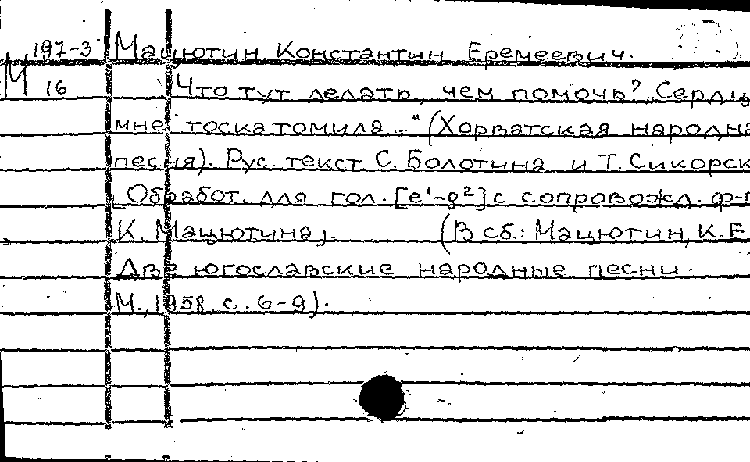 М 197-3 Мацютин Константин Еремеевич.
16 Что тут делать, чем помочь? „Сердц
мне тоска томила.." (Хорватская народна
песня). Рус. текст С. Болотина и Т. Сикорск
Обработ. для гол. [e¹-g²] с сопровожд. ф-п
К. Мацютина). (В сб.: Мацютин, К.Е
Две югославские народные песни.
М., 1958, с. 6-9).